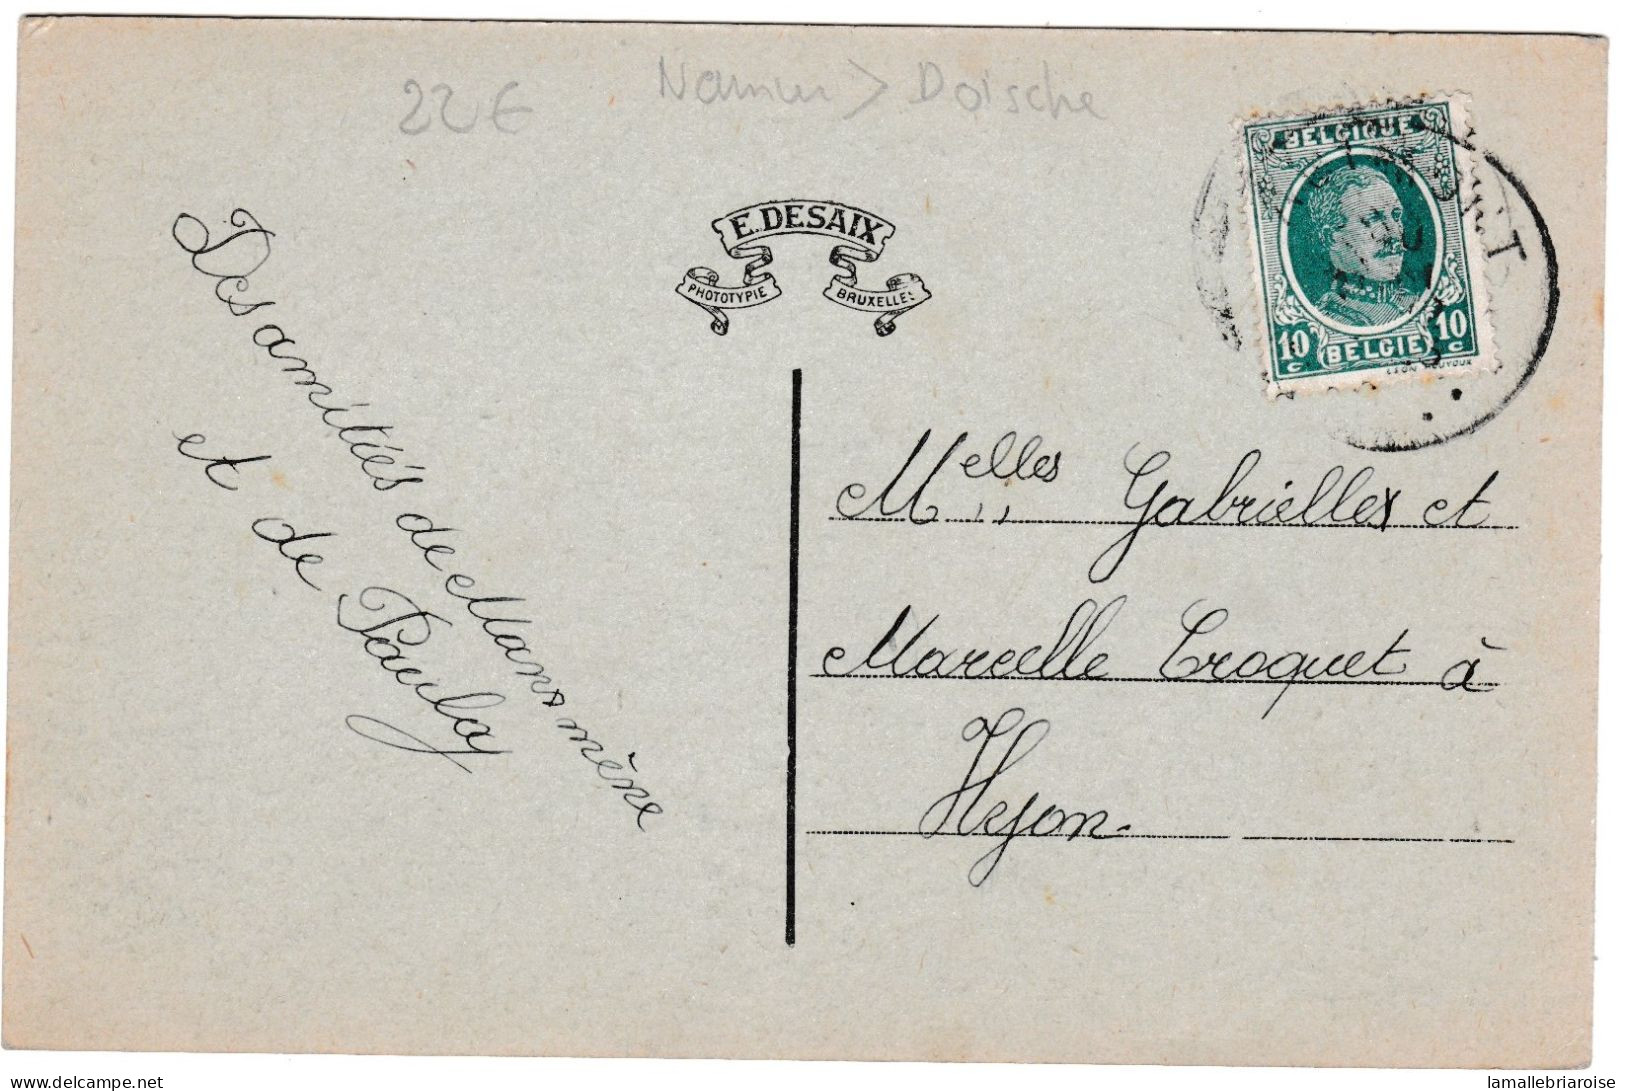 22€
Namur > Doische
E. DESAIX
PHOTOTYPIE
BRUXELLES
BELGIQUE
10 c
BELGIË
10 c
Des amitiés de Mamx mène
et de Paula
Melles Gabrielles et
Marcelle Croquet à
Hyon.
www.delcampe.net
lamallebriaroise